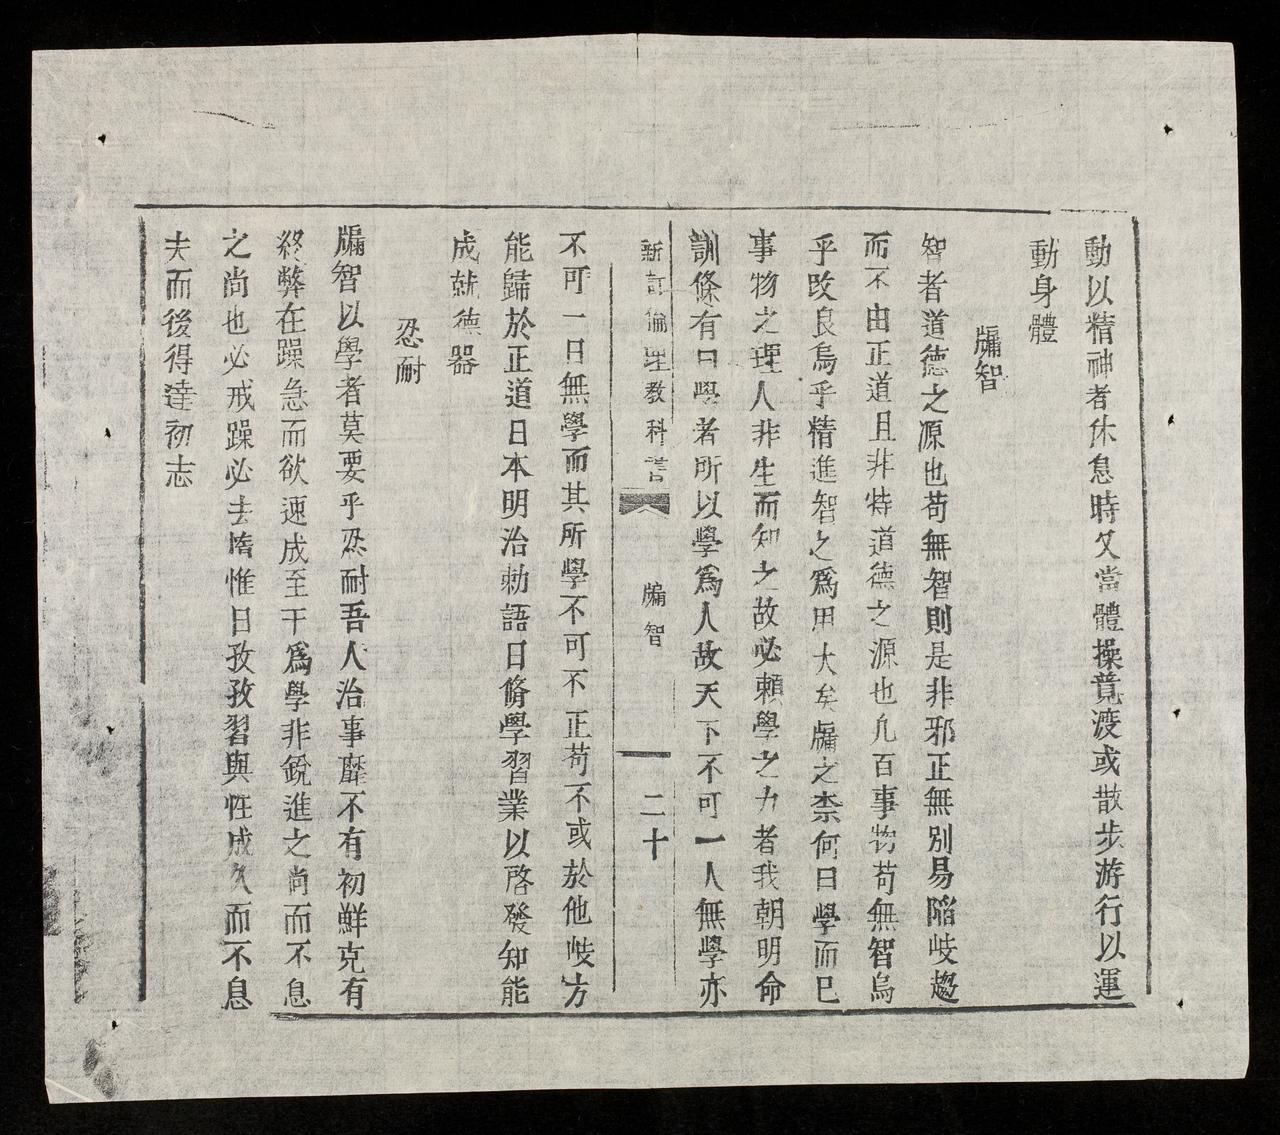 動以精神者休息時又當體操竟渡或散步游行以運
動身體
牖智
智者道德之源也苟無智則是非邪正無別易陷岐趨
而不由正道且非特道德之源也凡百事物苟無智烏
乎改良烏乎精進智之爲用大矣牖之柰何曰學而已
事物之理人非生而知之故必賴學之力者我朝明命
訓條有曰學者所以學爲人故天下不可一人無學亦
新訂倫理教科書
牖智
二十
不可一日無學而其所學不可不正苟不或於他岐方
能歸於正道日本明治勅語曰脩學習業以啓發知能
成就德器
忍耐
牖智以學者莫要乎忍耐吾人治事靡不有初鮮克有
終弊在躁急而欲速成至于爲學非銳進之尚而不息
之尚也必戒躁必去惰惟日孜孜習與性成久而不息
夫而後得達初志